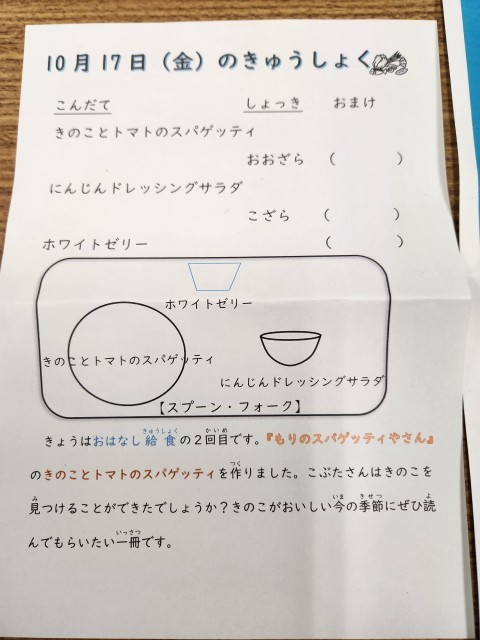 10月17日（金）のきゅうしょく
こんだて　しょっき　おまけ
きのことトマトのスパゲッティ
おおざら　（　　）
にんじんドレッシングサラダ
こざら　（　　）
ホワイトゼリー　（　　）
ホワイトゼリー
きのことトマトのスパゲッティ
にんじんドレッシングサラダ
【スプーン・フォーク】
きょうはおはなし給食の２回目です。『もりのスパゲッティやさん』
のきのことトマトのスパゲッティを作りました。こぶたさんはきのこを
見つけることができたでしょうか？きのこがおいしい今の季節にぜひ読
んでもらいたい一冊です。